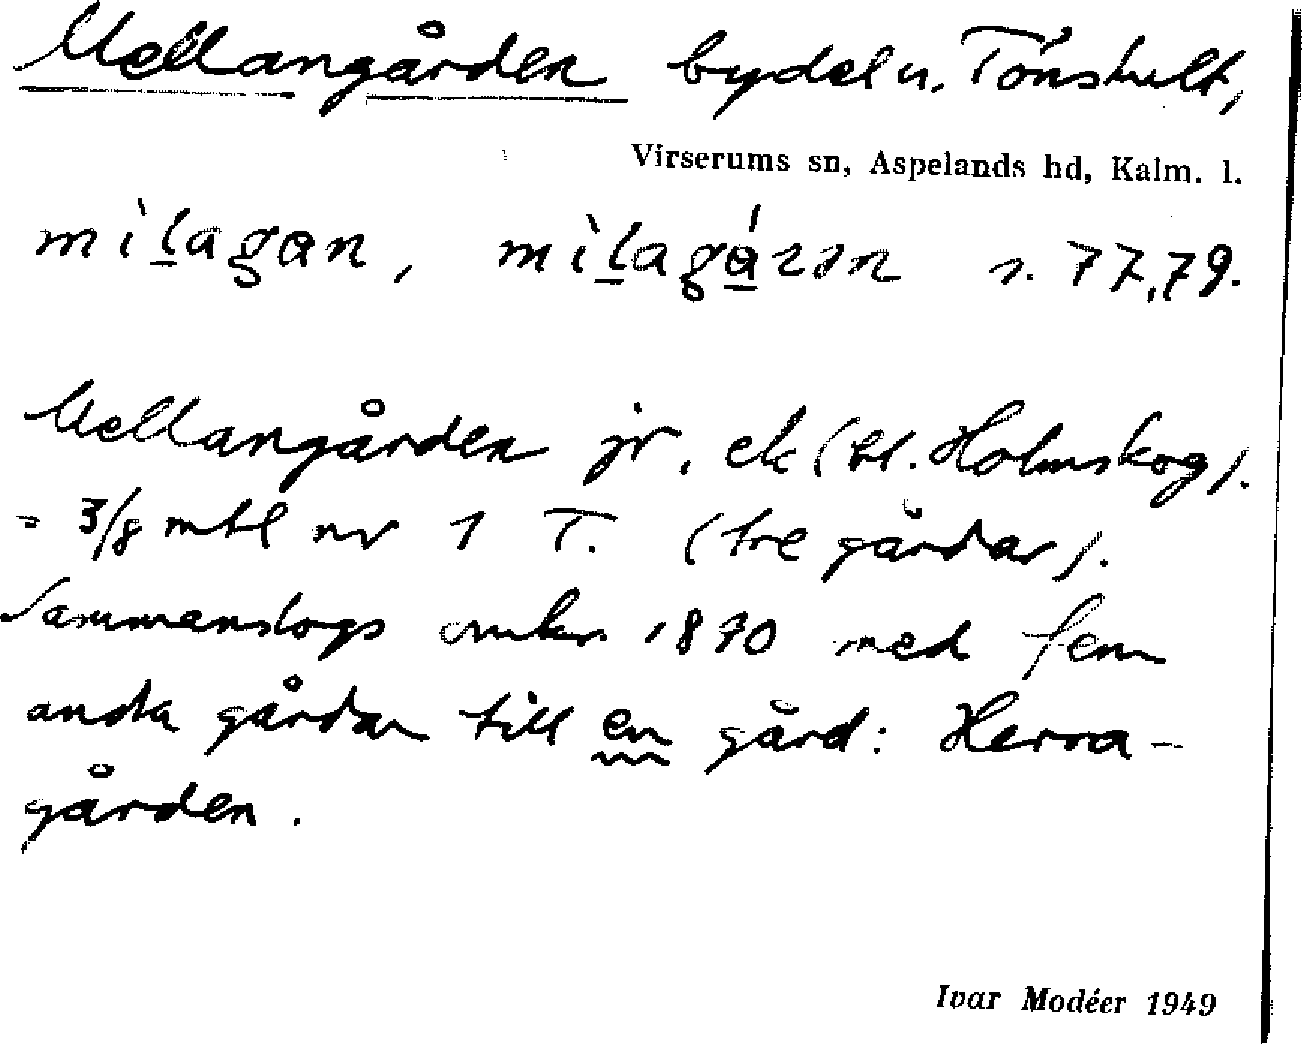 Mellangården bydel u. Tönshult,
Virserums sn, Aspelands hd, Kalm. l.
s. 77,79.
Mellangården jr, ek (bl. Holmskog).
= 3/8 mtl nr 1 T. (tre gårdar).
Sammanslogs omkr. 1870 med fem
andra gårdar till en gård: Herra-
gården.
Ivar Modéer 1949